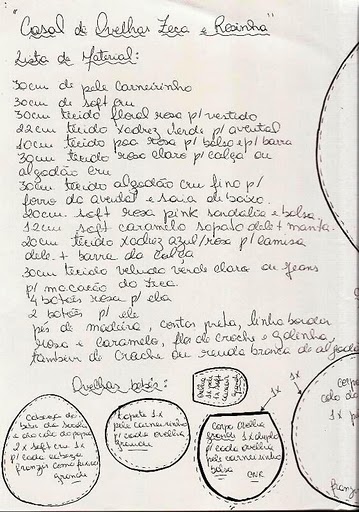 "Casal de Ovelhas Zeca e Rosinha"
Lista de Material:
30cm de pele carneirinho
30cm de soft cru
30cm tecido floral rosa p/ vestido
22cm tecido xadrez verde p/ avental
10cm tecido poa rosa p/ bolso e p/ barra
30cm tecido rosa claro p/ calça ou
algodão cru
30cm tecido algodão cru fino p/
forro do avental e saia de baixo.
20cm soft rosa pink sandália e bolsa,
12cm soft caramelo sapato dele + manta.
20cm tecido xadrez azul/rosa p/ camisa
dele + barra da calça
30cm tecido veludo verde claro ou jeans
p/ macacão do Zeca.
4 botões rosa p/ ela
2 botões p/ ele
pés de madeira, contas preta, linha bordar
rosa e caramelo, flor de croche e golinha,
tambem de Croche ou renda branca de algodã
Ovelhas bebês:
Cabeça do
bebe da
e do colo do papai
2x soft cru 1x
p/ cada cabeça
franzir como fuxico
grande
Topete 1x
pele carneirinho
p/ cada ovelha
grande
Orelha
1x soft
Corpo ovelha
grande 1x duplo
p/ cada ovelha
pele carneirinho
bolsa
1x
1x
corpo
colo do
1x p